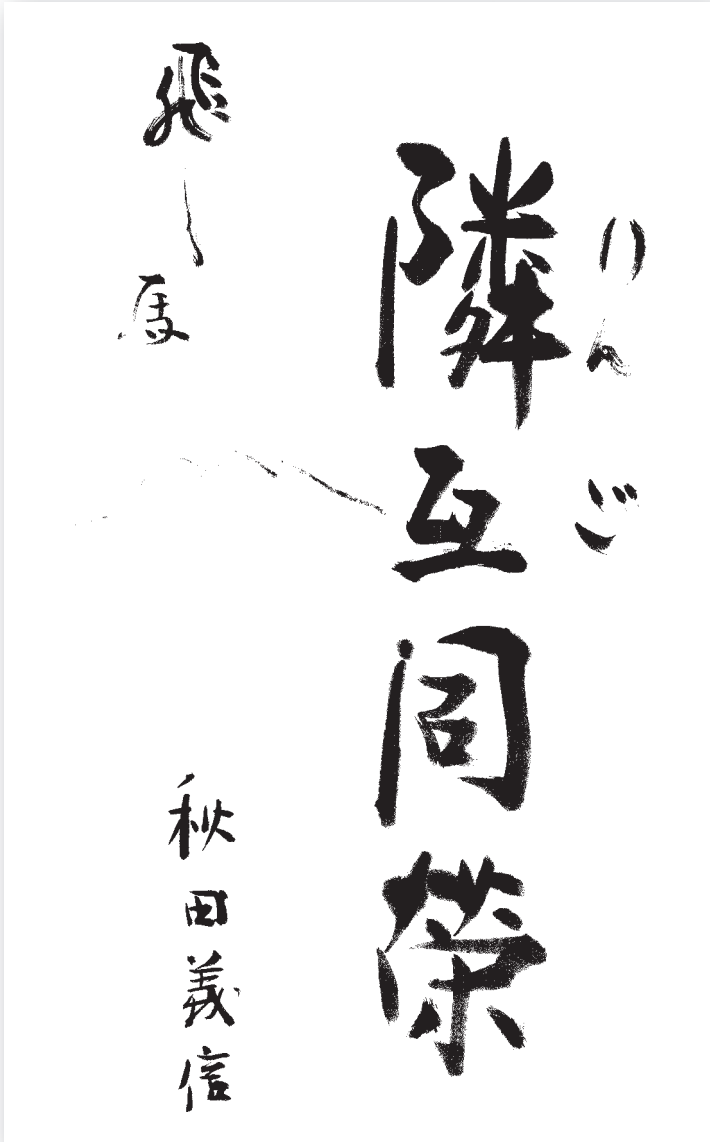 りんご
隣互同榮
飛
秋田義信